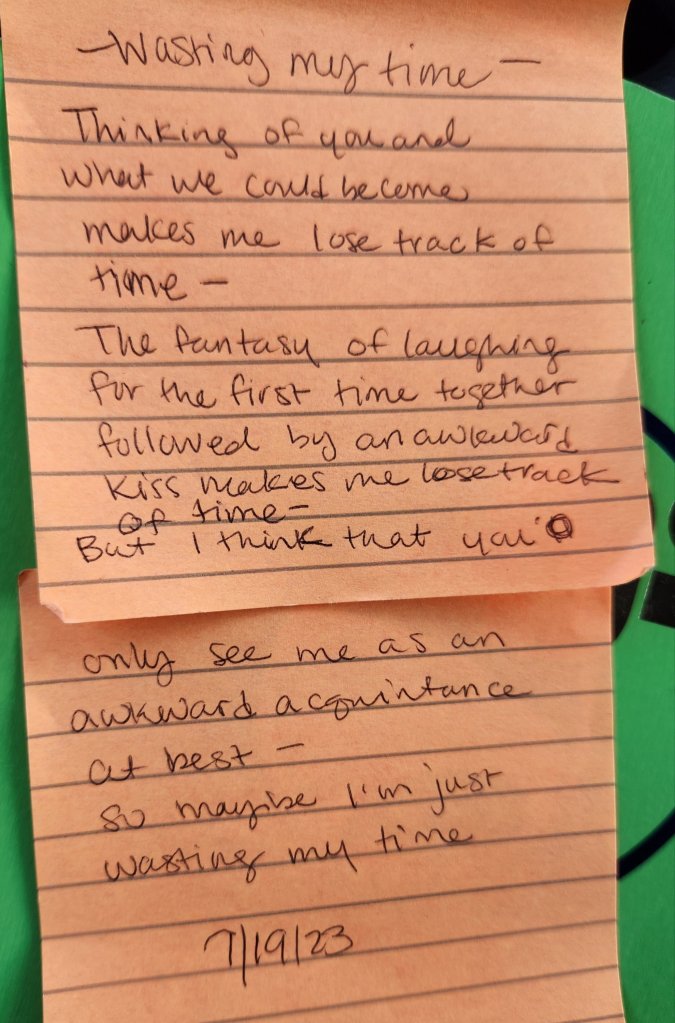 - Wasting my time -
Thinking of you and
what we could become
makes me lose track of
time -
The fantasy of laughing
for the first time together
followed by an awkward
kiss makes me lose track
of time -
But I think that you
only see me as an
awkward acquintance
at best -
so maybe I'm just
wasting my time
7/19/23